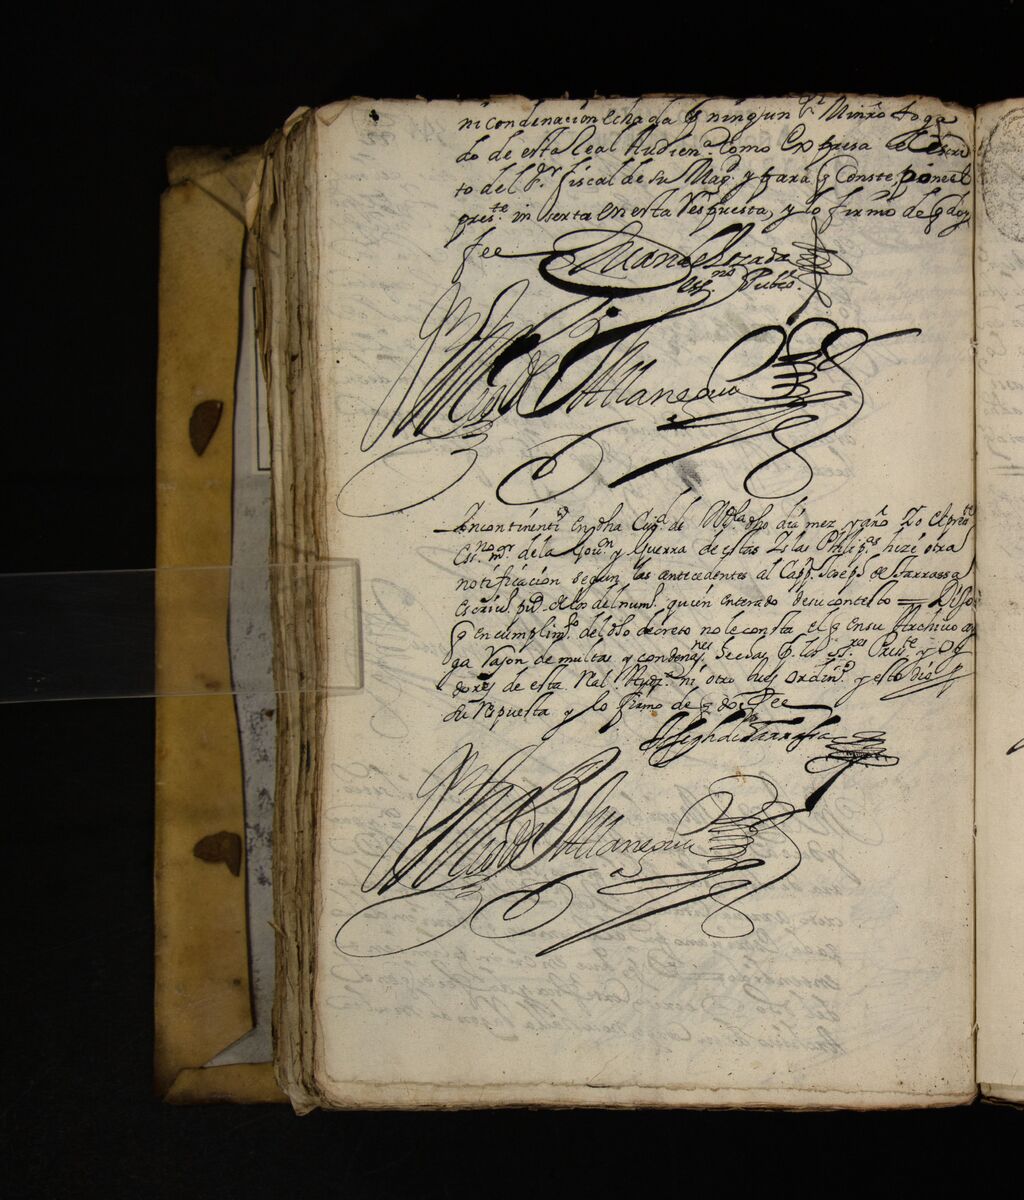 ni condenacion echa da q̃ ningun Sr Minro toga
do de esta Real Audiena. como Expresa el Escri
to del Sr. fiscal de su Magd. y para q̃ Conste, pone el
preste. in serta en esta Respuesta, y lo firmó de q̃ doy
fee
Juan de Rozada
essno Pubco.
Villanueva
Incontinenti En dha Ciud. de Mla dho dia mez y año Yo el preste
Essno mor de la Gouon y Guerra de estas Islas Philipas hize otra
notificacion segun las antecedentes al Capp. Joseph de Sarrassa
escriu. pu. de los del num. quien enterado de su contesto = Dijo
q̃ en cumplimto del dho decreto no le consta el q̃ en su Archivo ay
ga rason de multas y condenanes hechas p. los Sres Presite y Oy
dores de esta Ral. Audia ni otro Jues Ordino y esto dio
su Respuesta y lo firmo de q̃ doi Fee
Joseph de Sarrassa
Villanueva